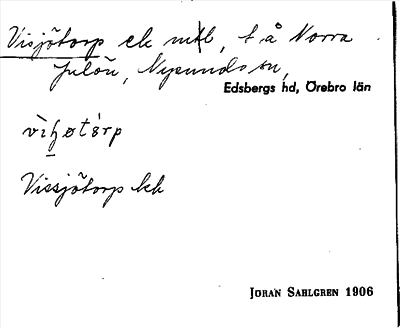 Visjötorp ek mtl, t. å Norra
Julön, Nysunds sn,
Edsbergs hd, Örebro län
Vissjötorp kk
JÖRAN SAHLGREN 1906